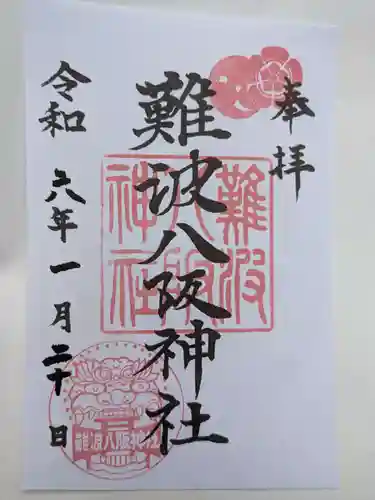 奉拝
難波八阪神社
令和六年一月二十日
難波
八阪
神社
難波八阪神社